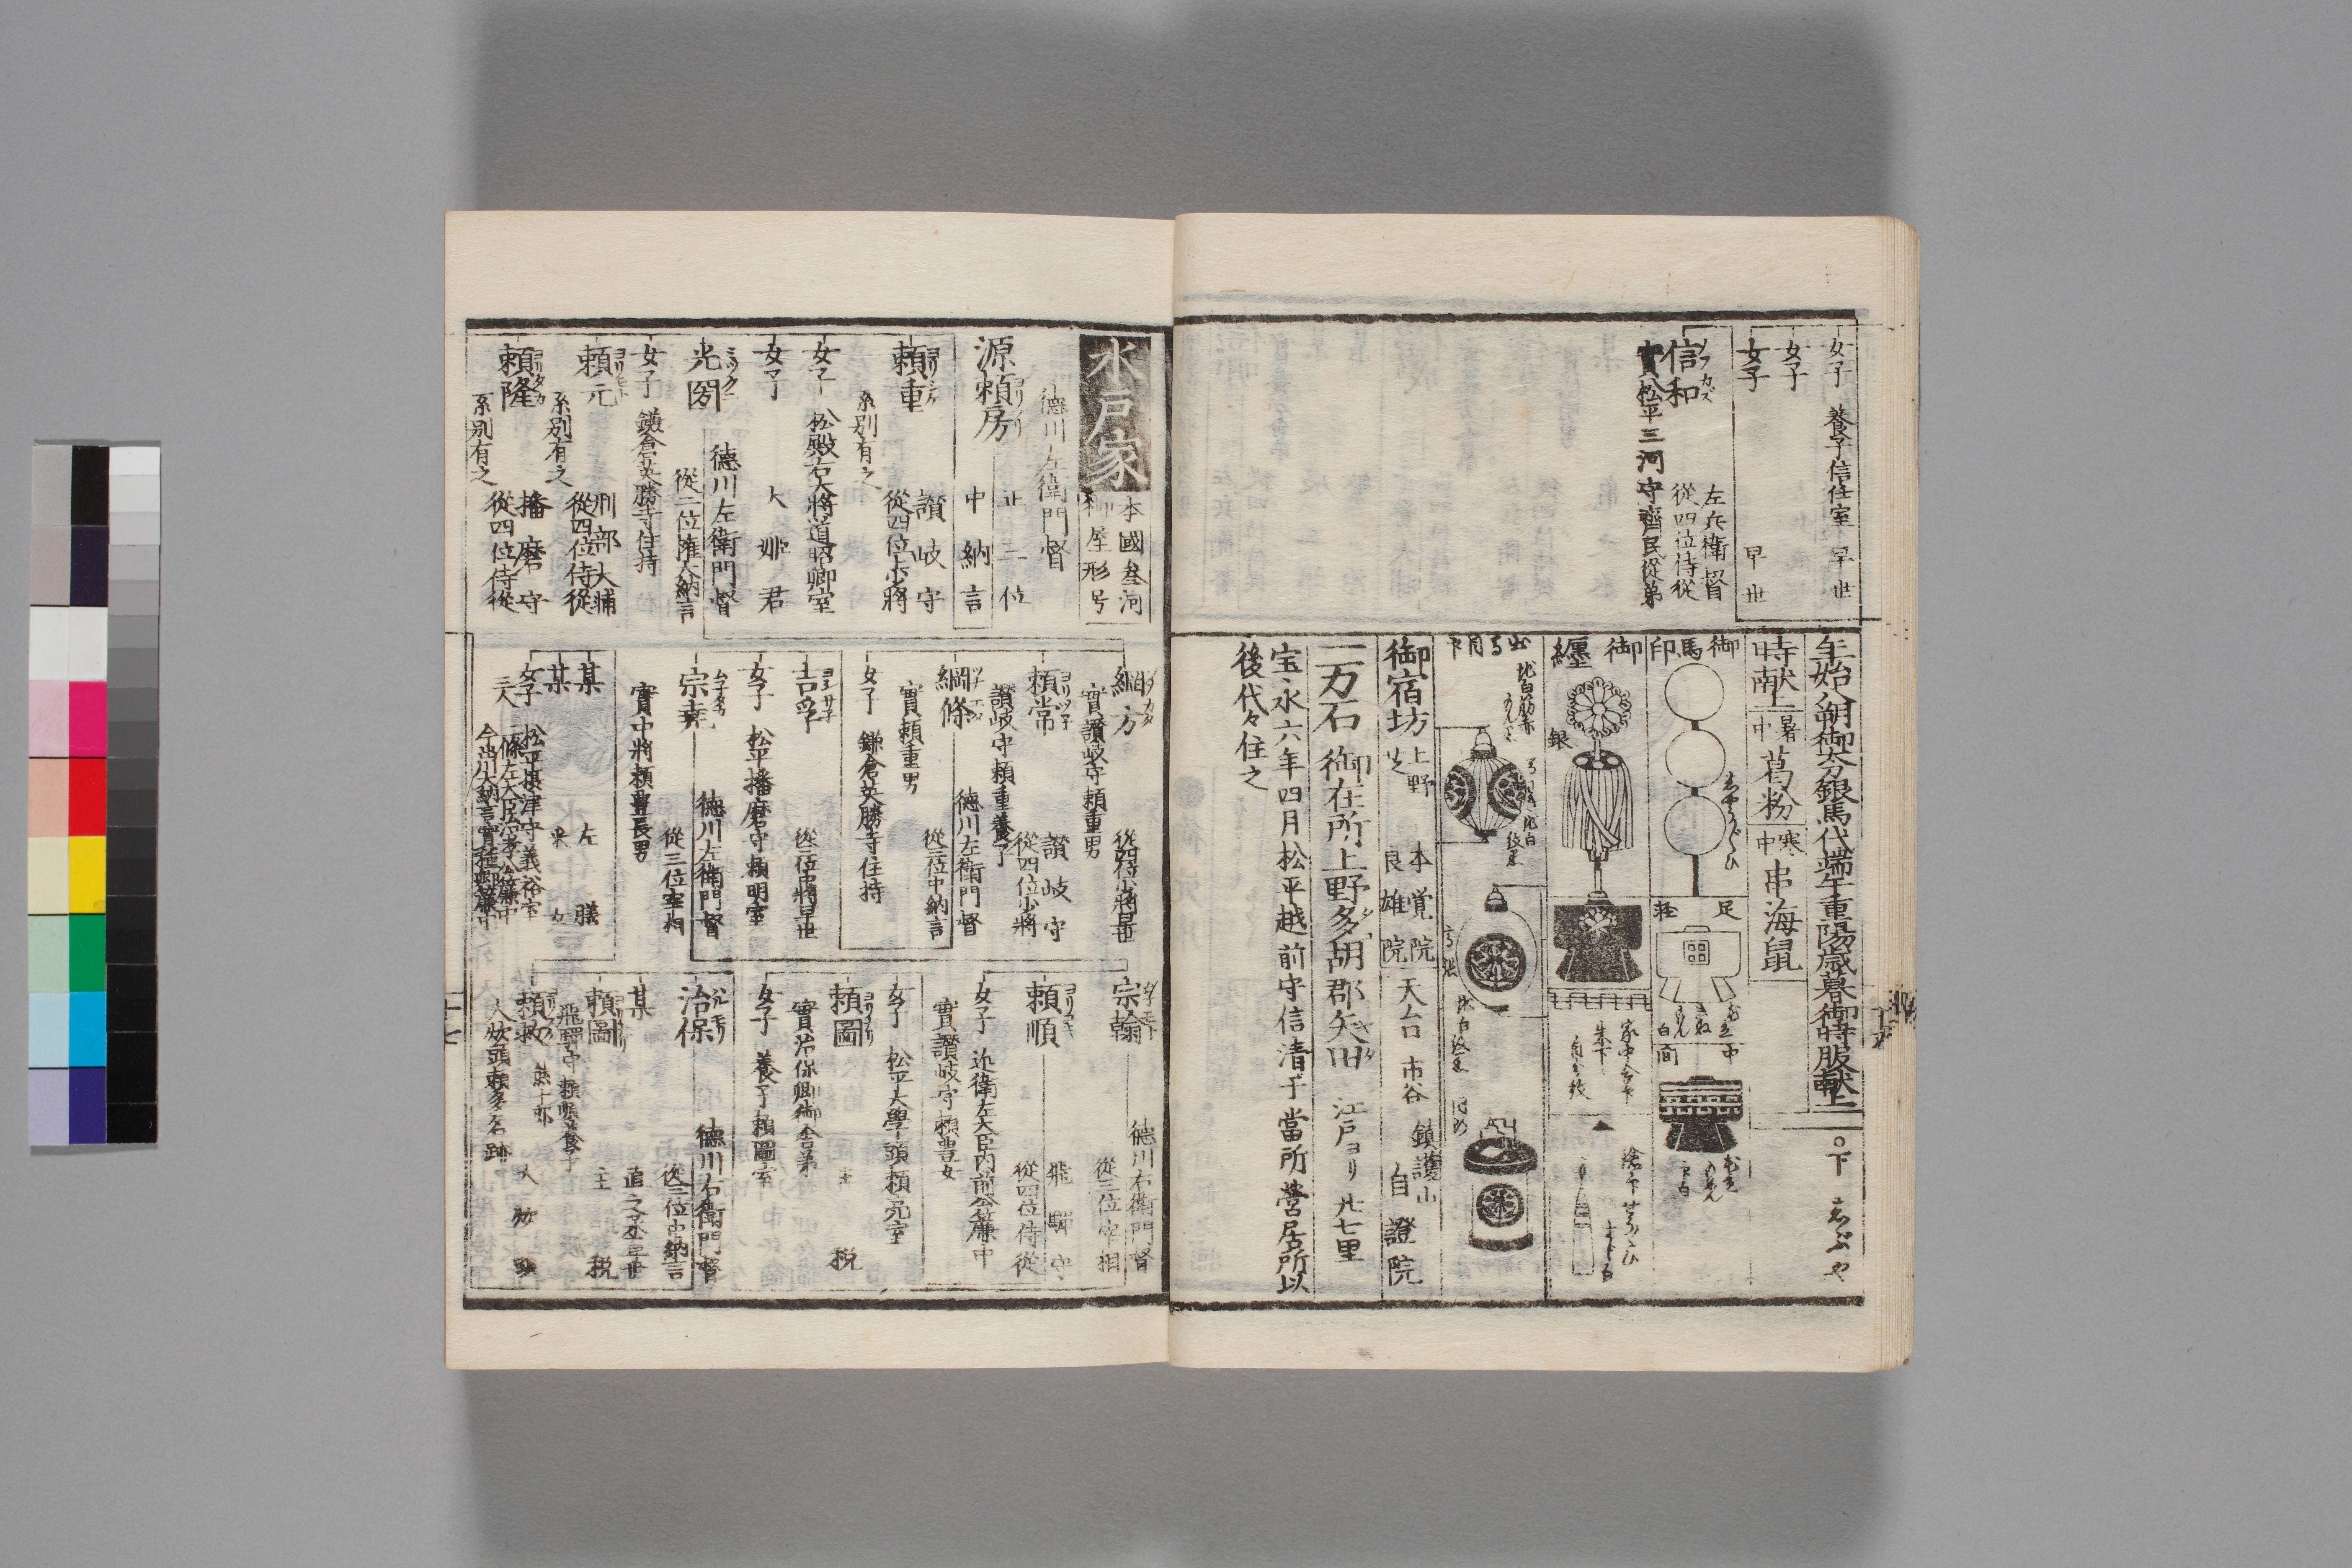 女子 養子信任室 早世
女子
女子 早世
信和 ノブカズ 左兵衛督
從四位侍從
實松平三河守齊民從弟
年始八朔御太刀銀馬代端午重陽歳暮御時服献上
時献上
暑中 葛粉
寒中 串海鼠
御馬印
足軽
御纏
銀
御宿坊
上野 本覚院
芝 良雄院
天台 市谷 鎮護山 自證院
二万石 御在所上野多胡郡矢田 江戸ヨリ 廿七里
宝永六年四月松平越前守信清于當所營居所以
後代々住之
水戸家
本國叁河
御屋形号
徳川左衛門督
源頼房 正二位
中納言
頼重 讃岐守
從四位少將
系別有之
女子 松殿右大將道昭卿室
女子 大姫君
光圀 徳川左衛門督
從二位權大納言
女子 鎌倉英勝寺住持
頼元 刑部大輔
從四位侍從
系別有之
頼隆 播磨守
從四位侍從
系別有之
綱方 從四位少將早世
實讃岐守頼重男
頼常 讃岐守
從四位少將
讃岐守頼重養子
綱條 徳川左衛門督
從三位中納言
實頼重男
女子 鎌倉英勝寺住持
吉孚 從三位中將早世
女子 松平播磨守頼明室
宗堯 徳川左衛門督
從三位宰相
實中將頼豊長男
某 左膳
某
女子三人 松平摂津守義裕室
一條左大臣治孝公簾中
宗翰 徳川右衛門督
從三位宰相
頼順 飛騨守
從四位侍從
女子 近衛左大臣内前公簾中
實讃岐守頼豊女
女子 松平大學頭頼亮室
頼圖 主税
實治保卿御舎弟
女子 養子頼圖室
治保 徳川右衛門督
從三位中納言
某 直之丞早世
頼圖 主税
飛騨守頼順養子
頼救 大炊頭
大炊頭頼多名跡